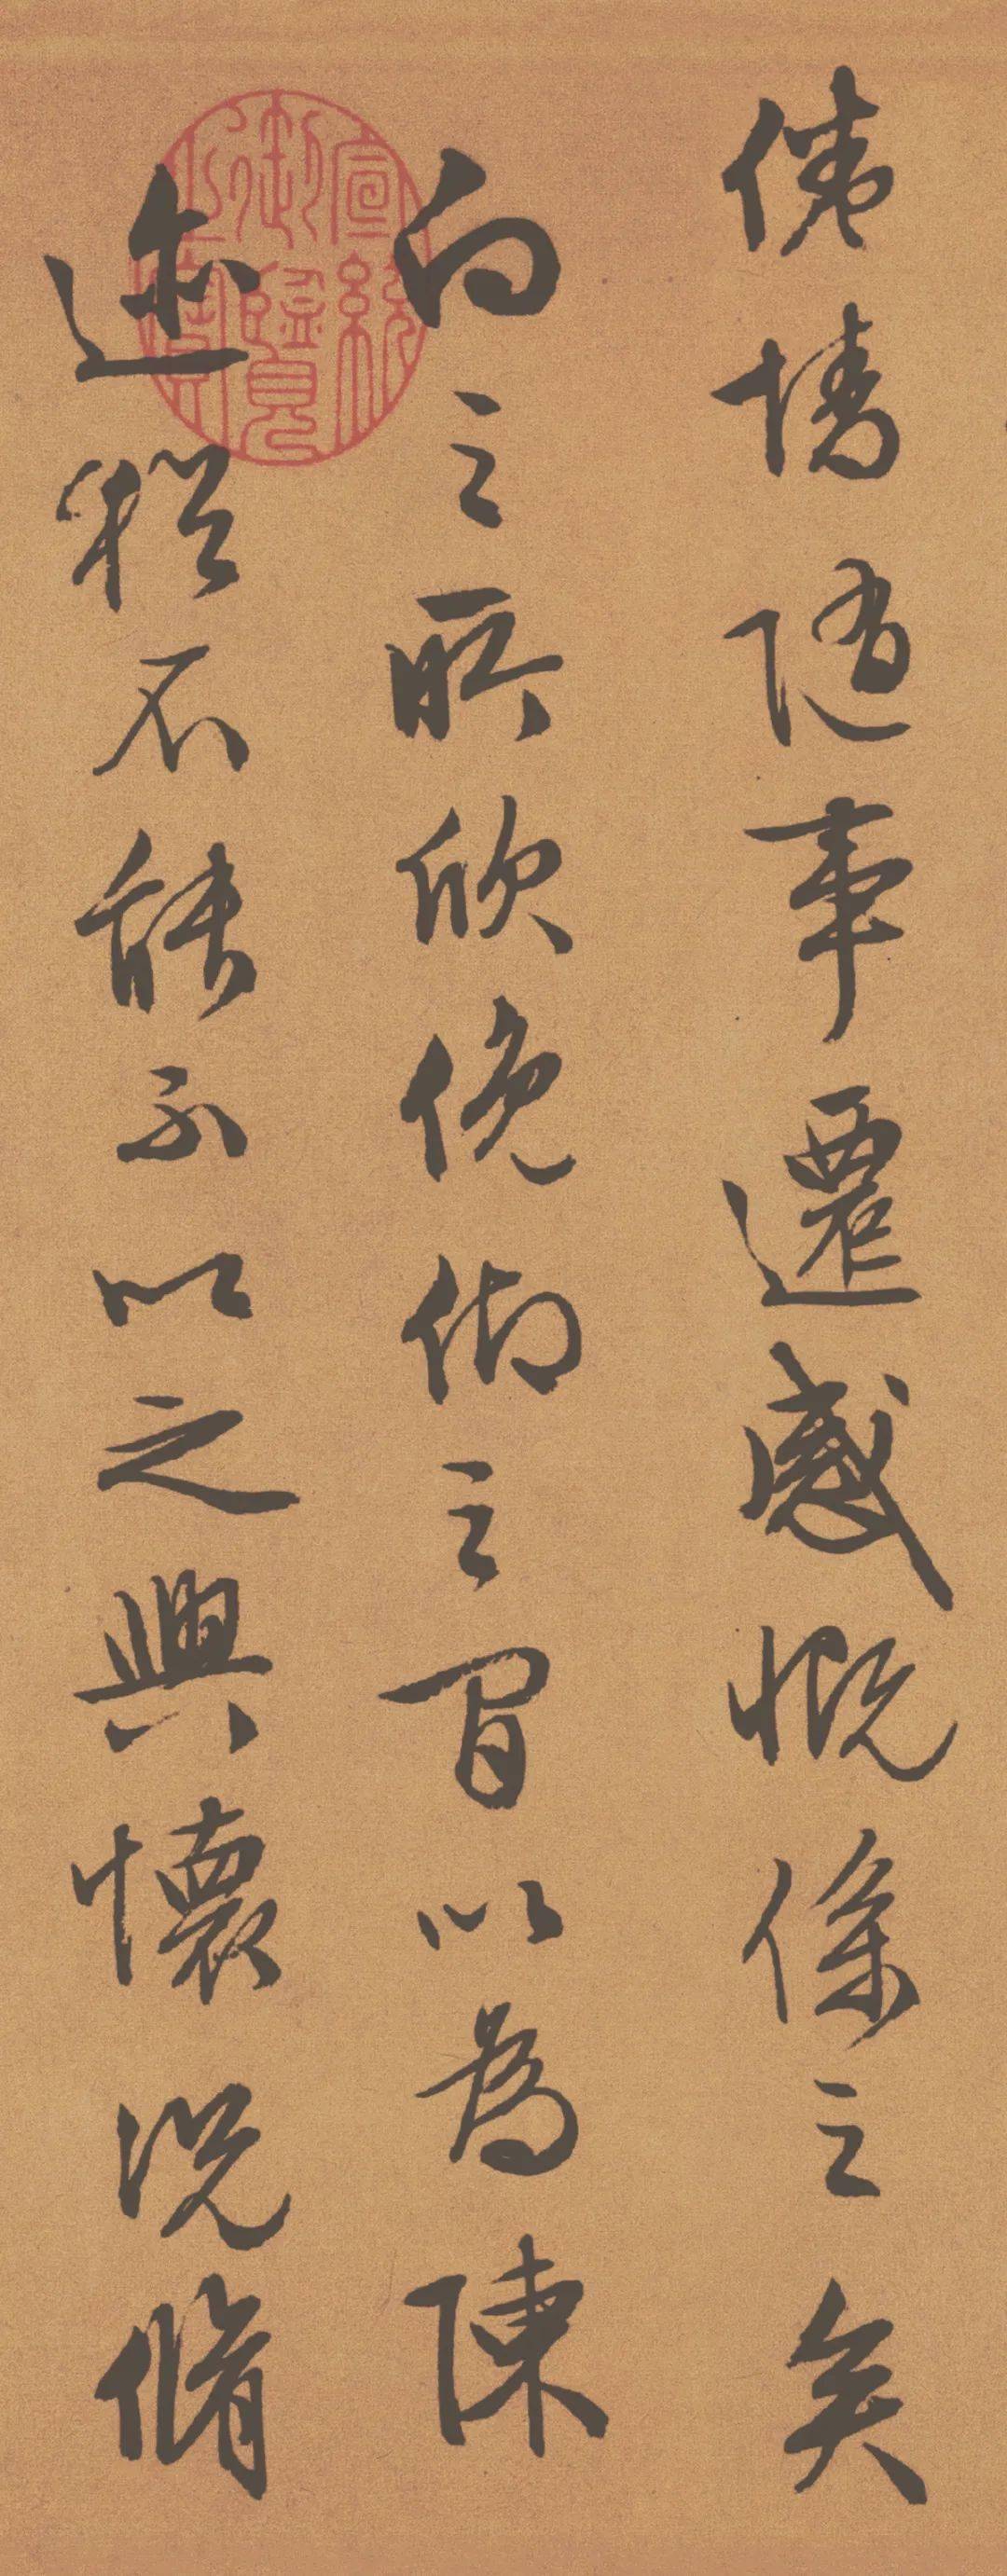 倦情隨事遷感慨係之矣
向之所欣俛仰之間以為陳
迹猶不能不以之興懷況脩
宣統御覽之寶